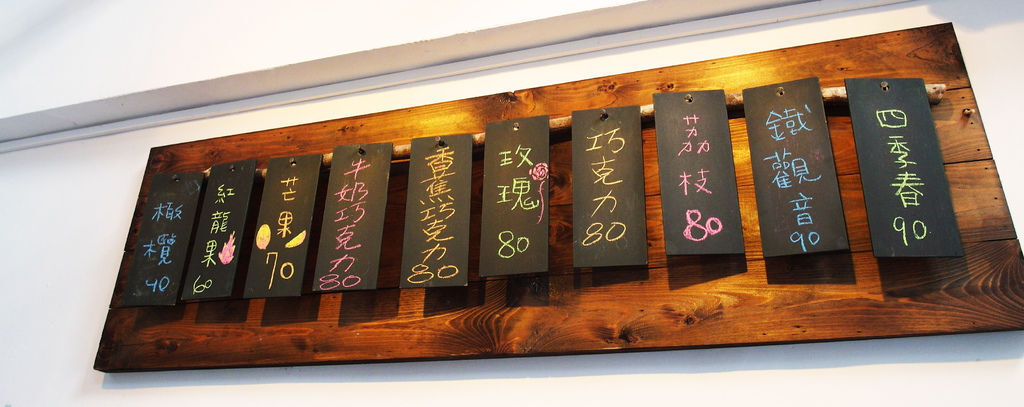 橄欖
40
紅龍果
60
芒果
70
牛奶巧克力
80
香蕉巧克力
80
玫瑰
80
巧克力
80
茘枝
80
鐵觀音
90
四季春
90